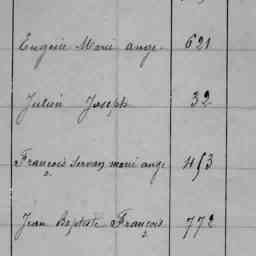 Eugène Marie ange 621
Julien Joseph 32
François Servan marie ange 453
Jean Baptiste François 772